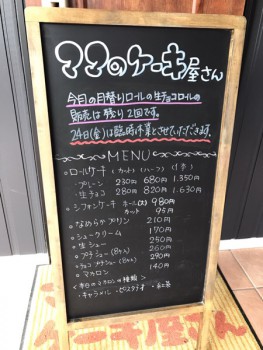 ママのケーキ屋さん
今日の日替りロールの生チョコロールの
販売は残り2回です。
24日(金)は臨時休業とさせていただきます。
MENU
○ロールケーキ (カット) (ハーフ) (1本)
・プレーン 230円 680円 1.350円
・生チョコ 280円 820円 1.630円
○シフォンケーキ ホール(大) 980円
カット 95円
○なめらかプリン 210円
○シュークリーム 170円
○生シュー 250円
○プチシュー (8ヶ入) 260円
○チョコプチシュー (8ヶ入) 290円
○マカロン 140円
・キャラメル ・ピスタチオ ・紅茶
ケーキ屋さん